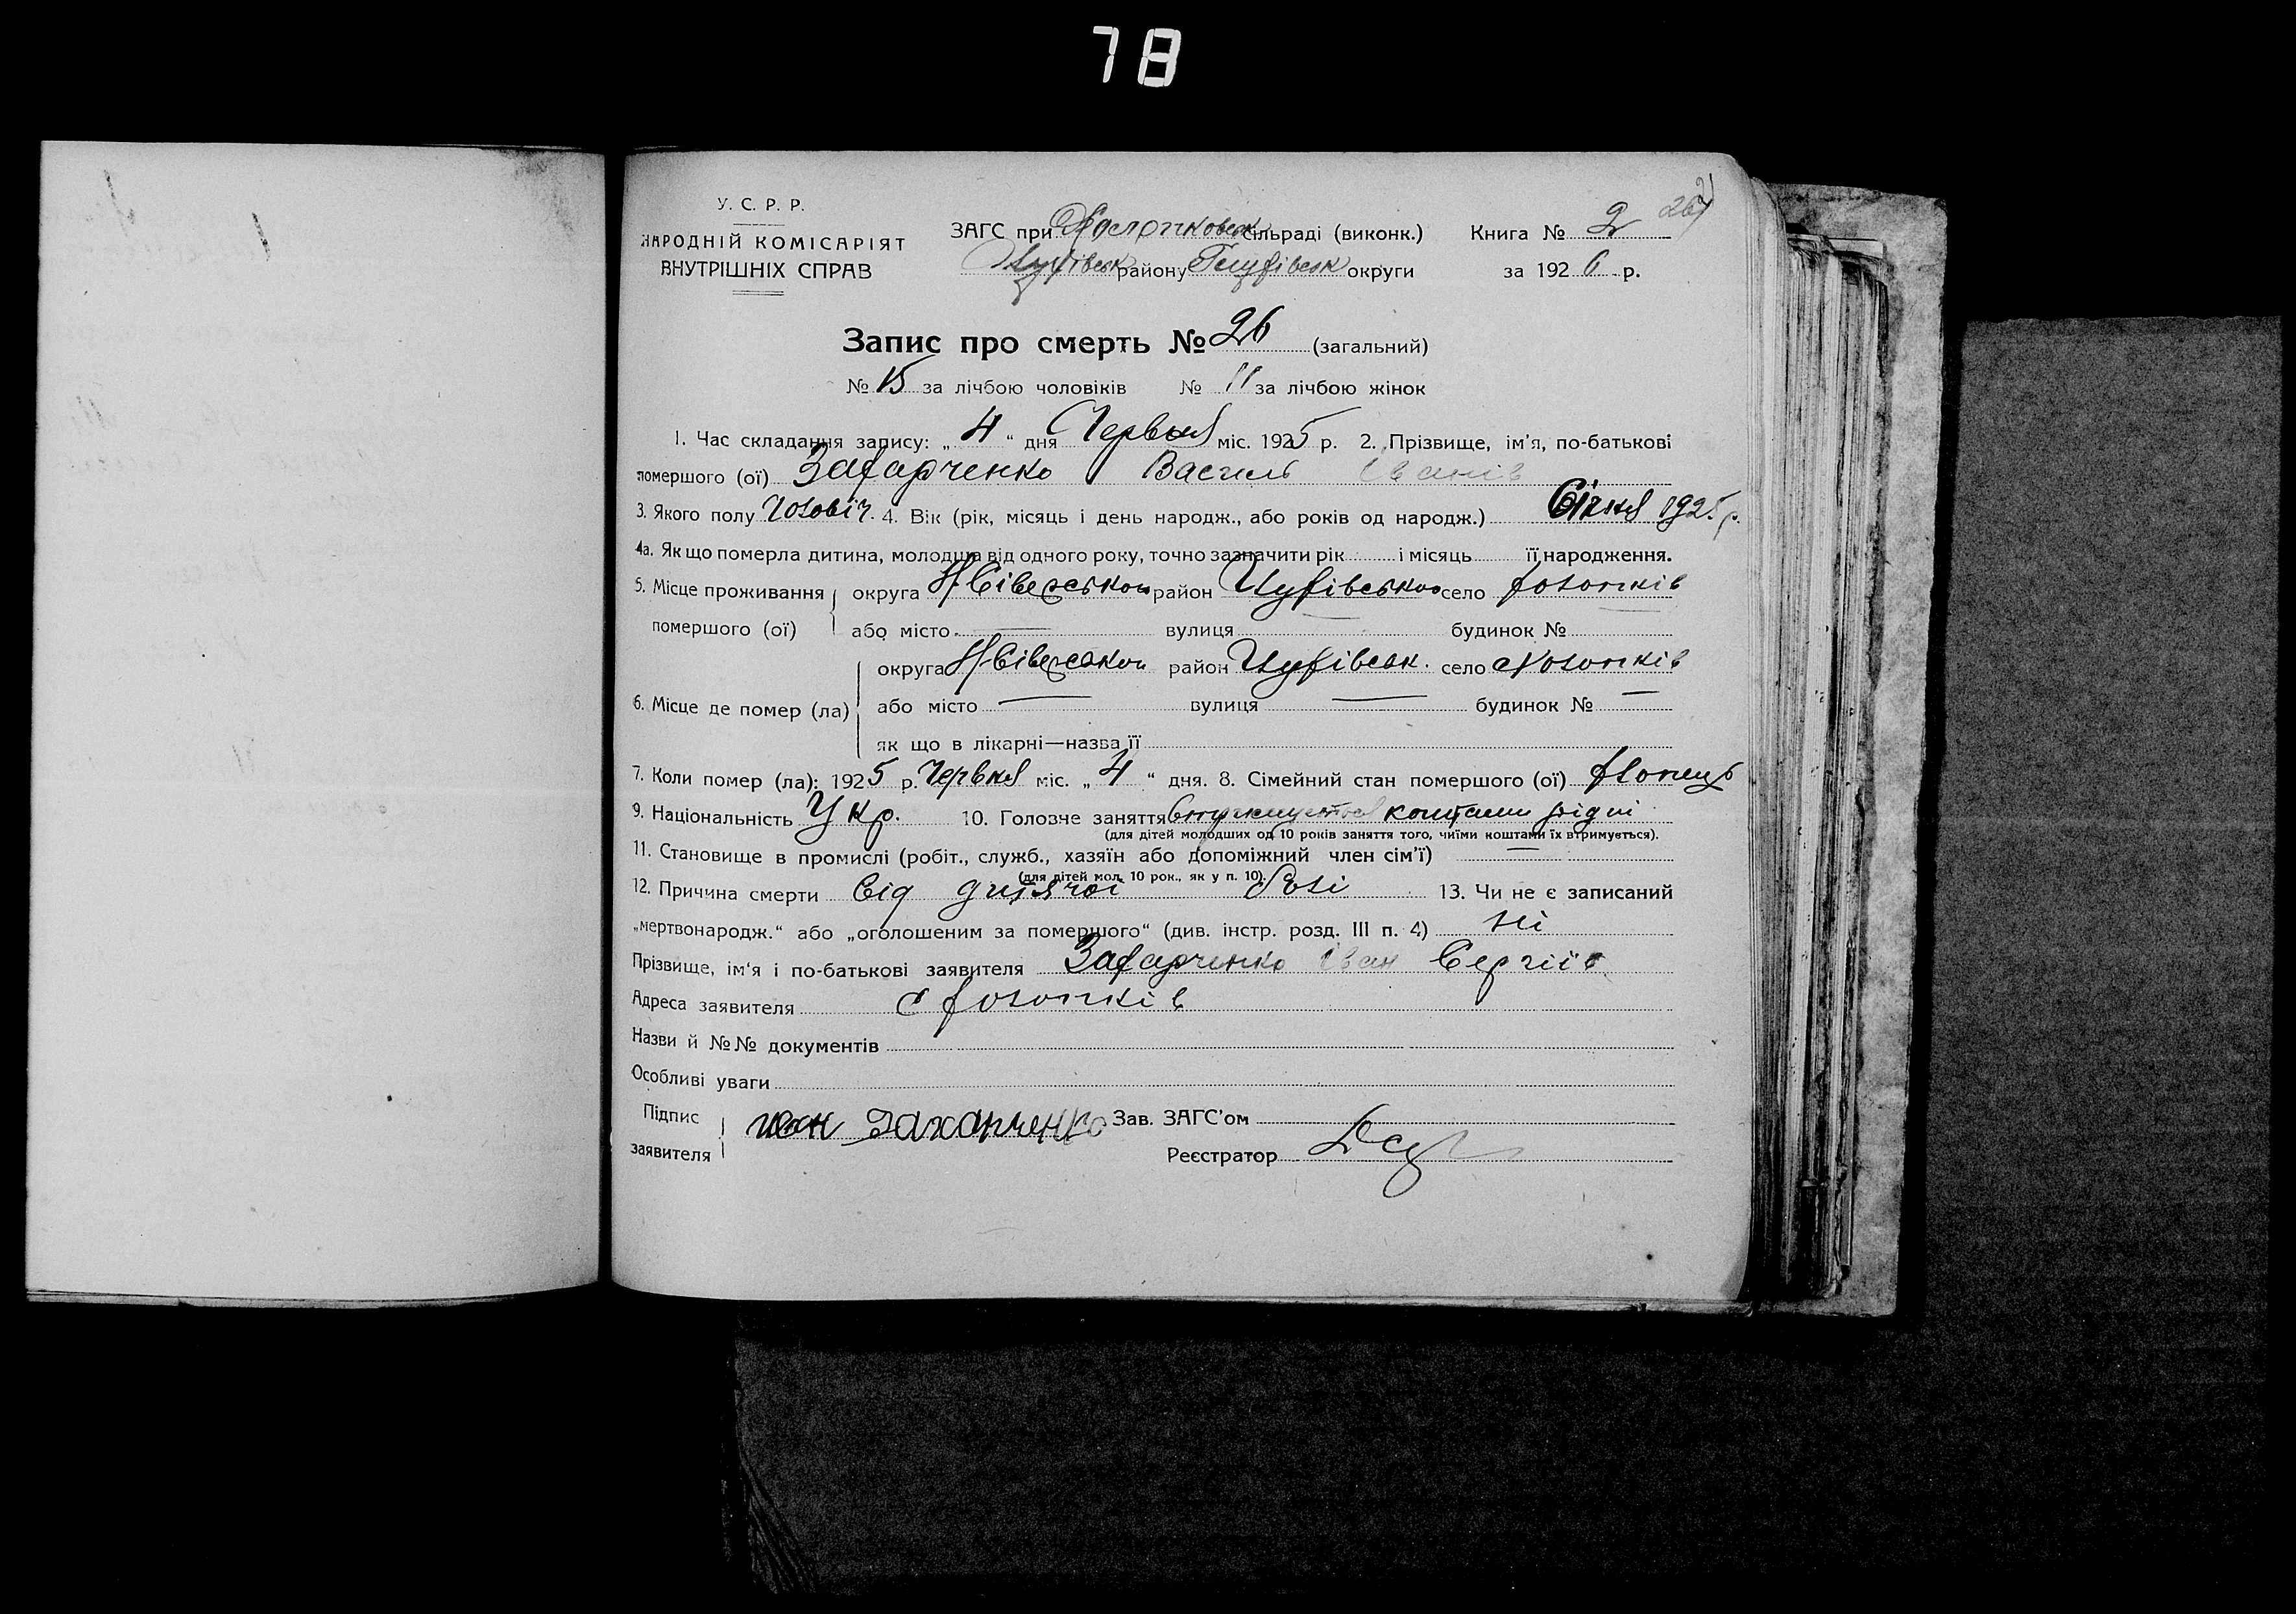 78
267
У. С. Р. Р.
НАРОДНІЙ КОМІСАРІЯТ
ВНУТРІШНІХ СПРАВ
ЗАГС при сільраді (виконк.) Книга № 2
району округи за 1926 р.
Запис про смерть № 26 (загальний)
№ 15 за лічбою чоловіків № 11 за лічбою жінок
1. Час складання запису: „ 4 “ дня Червня міс. 1925 р. 2. Прізвище, ім'я, по-батькові
помершого (ої) Захарченко Василь Іванів
3. Якого полу Чоловіч. 4. Вік (рік, місяць і день народж., або років од народж.) Січня 1925 р.
4а. Як що померла дитина, молодша від одного року, точно зазначити рік і місяць її народження.
5. Місце проживання округа Н-Сіверської район село Холопків
помершого (ої) або місто — вулиця — будинок № —
округа Н-Сіверської район село Холопків
6. Місце де помер (ла) або місто — вулиця — будинок № —
як що в лікарні—назва її
7. Коли помер (ла): 1925 р. Червня міс. „ 4 “ дня. 8. Сімейний стан помершого (ої) хлопець
9. Національність Укр. 10. Головне заняття коштами рідні
(для дітей молодших од 10 років заняття того, чиїми коштами їх втримується).
11. Становище в промислі (робіт., служб., хазяїн або допоміжний член сім'ї) —
(для дітей мол. 10 рок., як у п. 10).
12. Причина смерти Від дитячої 13. Чи не є записаний
„мертвонародж.“ або „оголошеним за помершого“ (див. інстр. розд. III п. 4) ні
Прізвище, ім'я і по-батькові заявителя Захарченко Іван Сергіїв
Адреса заявителя с Холопків
Назви й №№ документів
Особливі уваги
Підпис Іван Захарченко Зав. ЗАГС'ом
заявителя Реєстратор